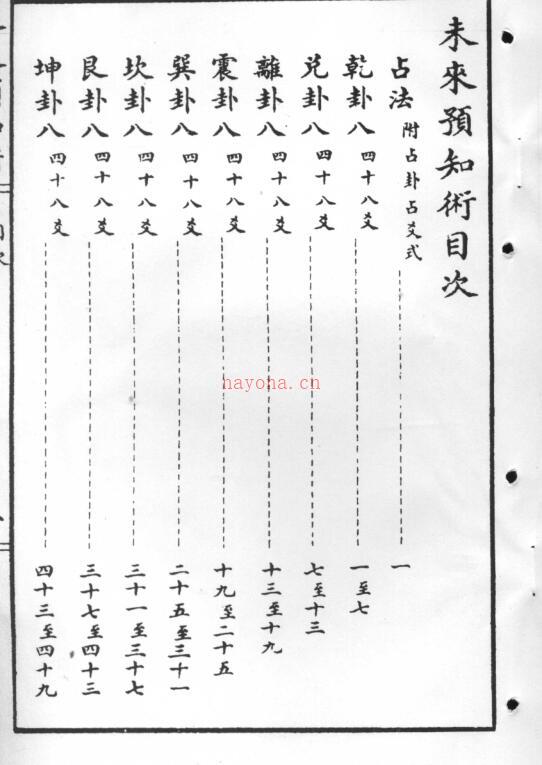 未來預知術目次
占法 附占卦占爻式 一
乾卦八 四十八爻 一至七
兌卦八 四十八爻 七至十三
離卦八 四十八爻 十三至十九
震卦八 四十八爻 十九至二十五
巽卦八 四十八爻 二十五至三十一
坎卦八 四十八爻 三十一至三十七
艮卦八 四十八爻 三十七至四十三
坤卦八 四十八爻 四十三至四十九
hayona.cn